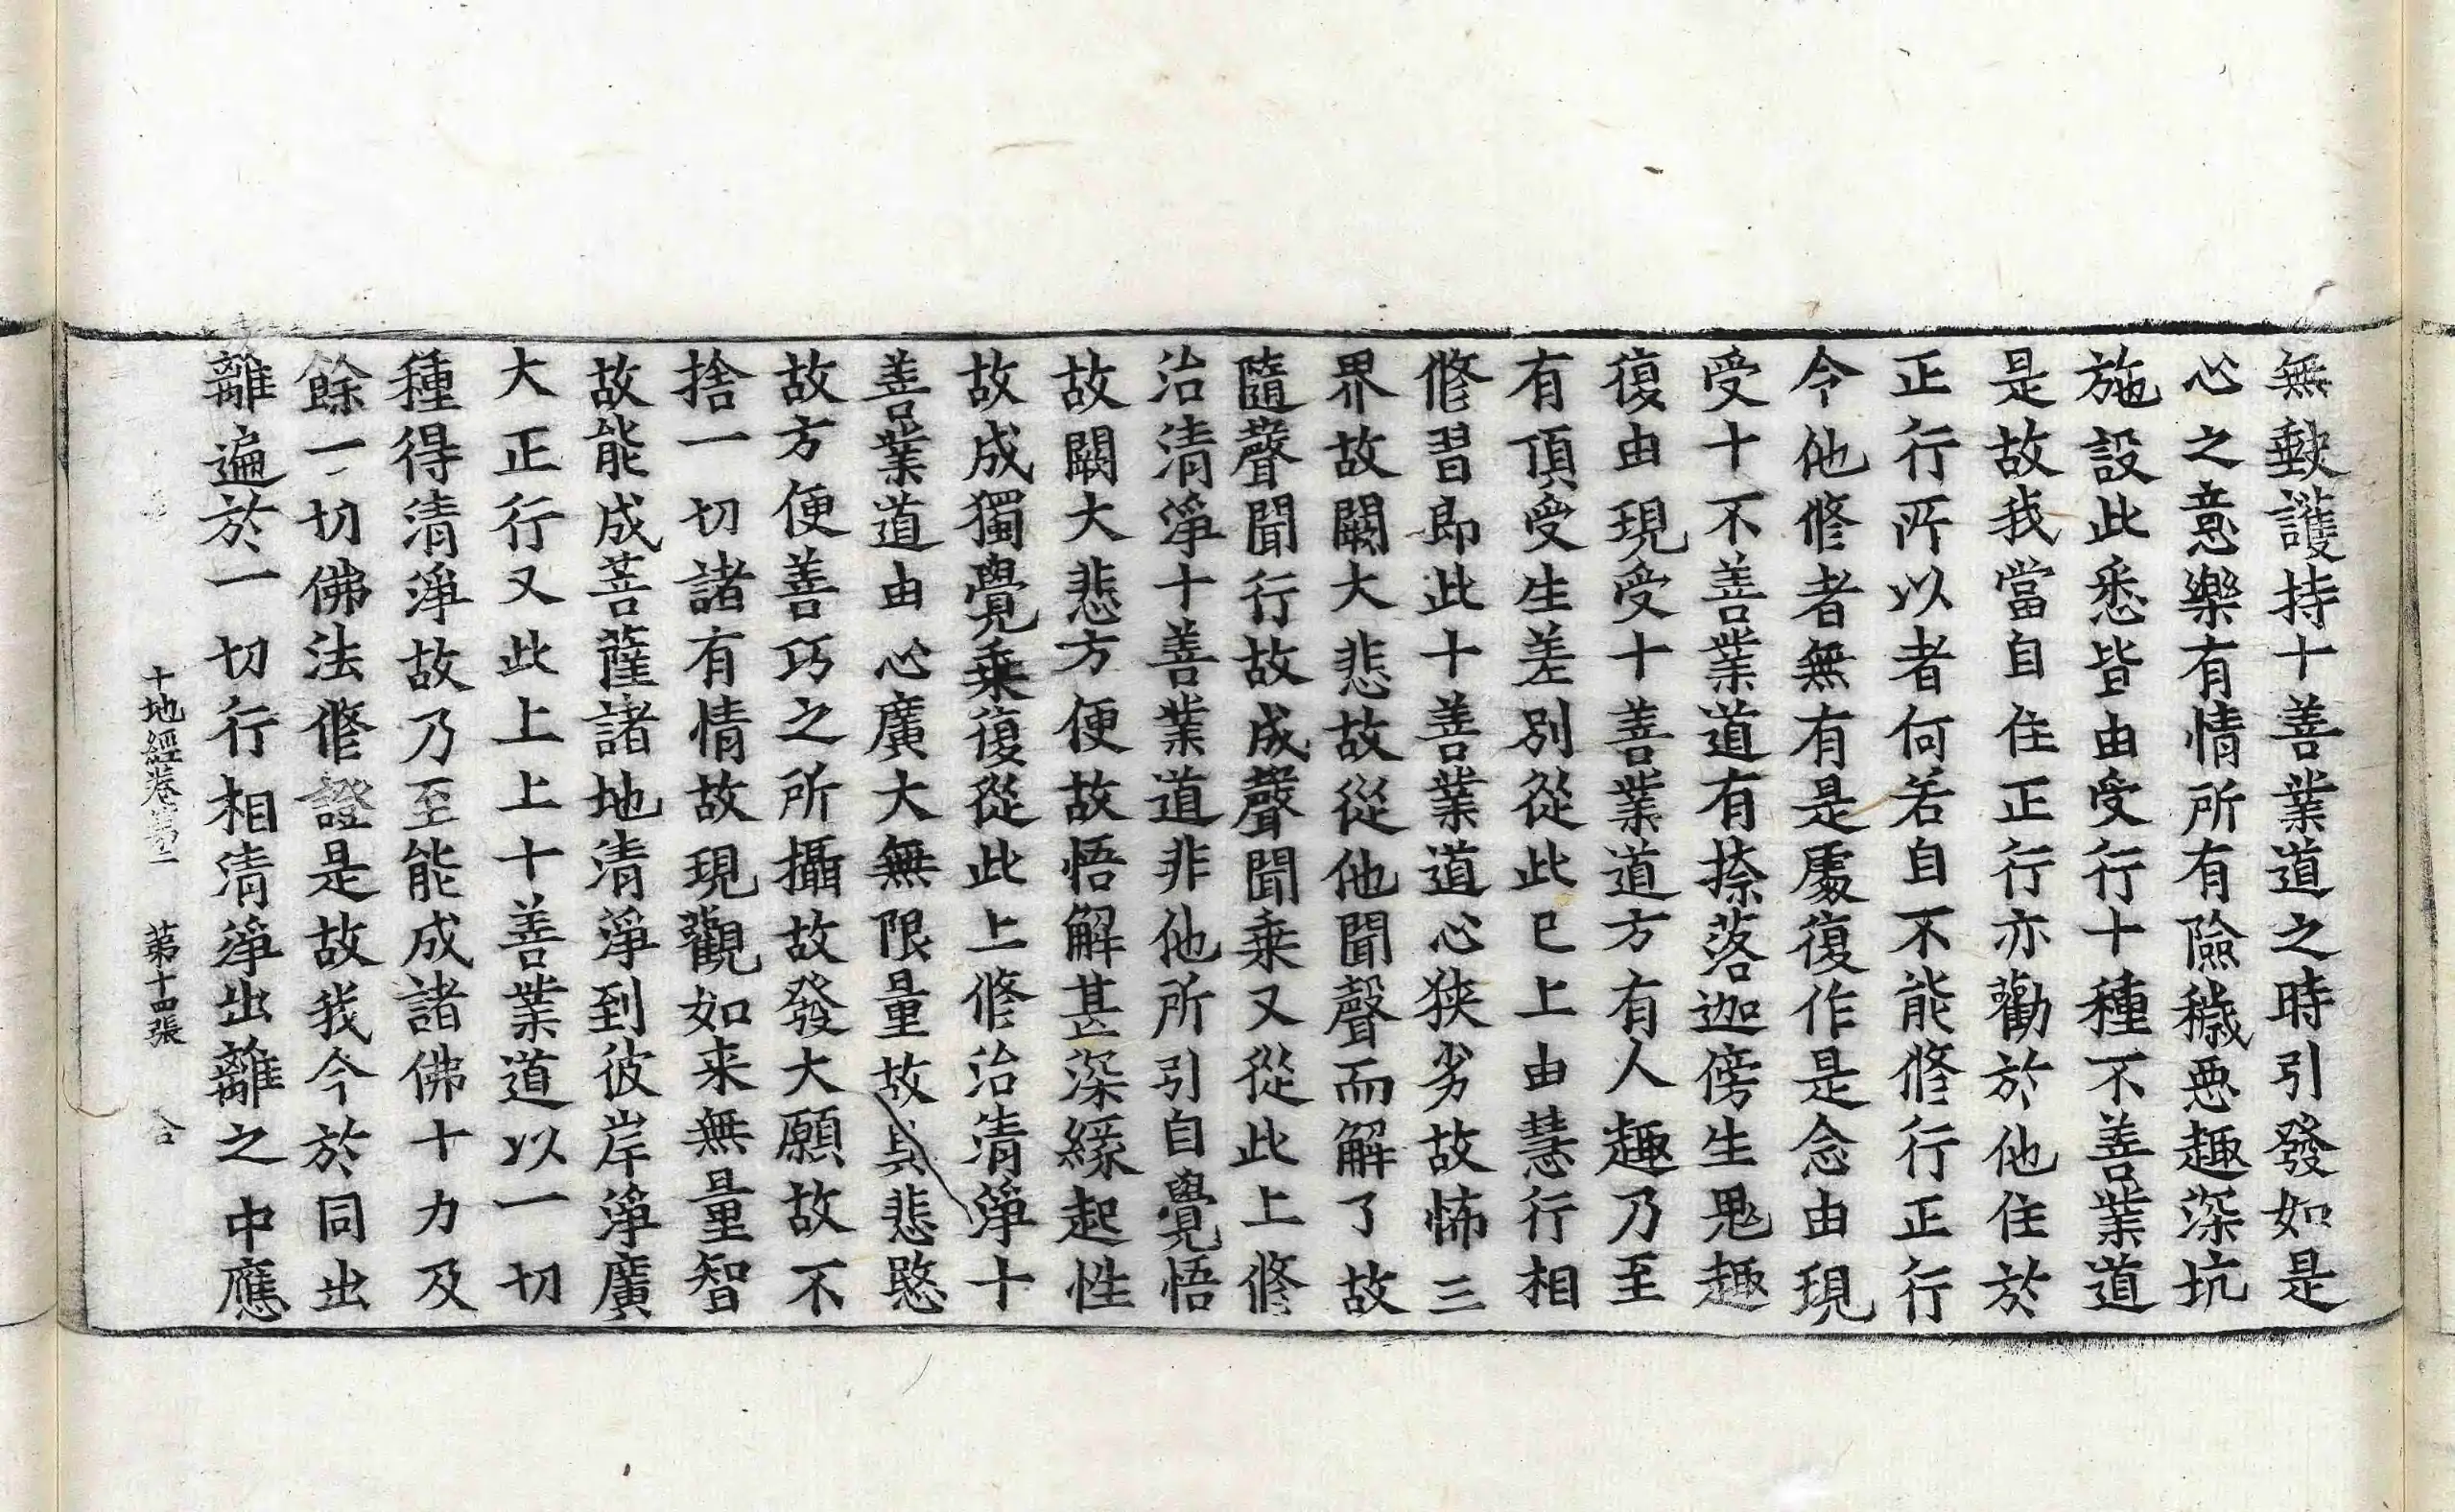 無缺護持十善業道之時引發如是
心之意樂有情所有險穢惡趣深坑
施設此悉皆由受行十種不善業道
是故我當自住正行亦勸於他住於
正行所以者何若自不能修行正行
令他修者無有是處復作是念由現
受十不善業道有捺落迦傍生鬼趣
復由現受十善業道方有人趣乃至
有頂受生差別從此已上由慧行相
修習即此十善業道心狹劣故怖三
界故闕大悲故從他聞聲而解了故
隨聲聞行故成聲聞乘又從此上修
治清淨十善業道非他所引自覺悟
故闕大悲方便故悟解甚深緣起性
故成獨覺乘復從此上修治清淨十
善業道由心廣大無限量故具悲愍
故方便善巧之所攝故發大願故不
捨一切諸有情故現觀如来無量智
故能成菩薩諸地清淨到彼岸淨廣
大正行又此上上十善業道以一切
種得清淨故乃至能成諸佛十力及
餘一切佛法修證是故我今於同出
離遍於一切行相清淨出離之中應
十地經卷第二 第十四張 合